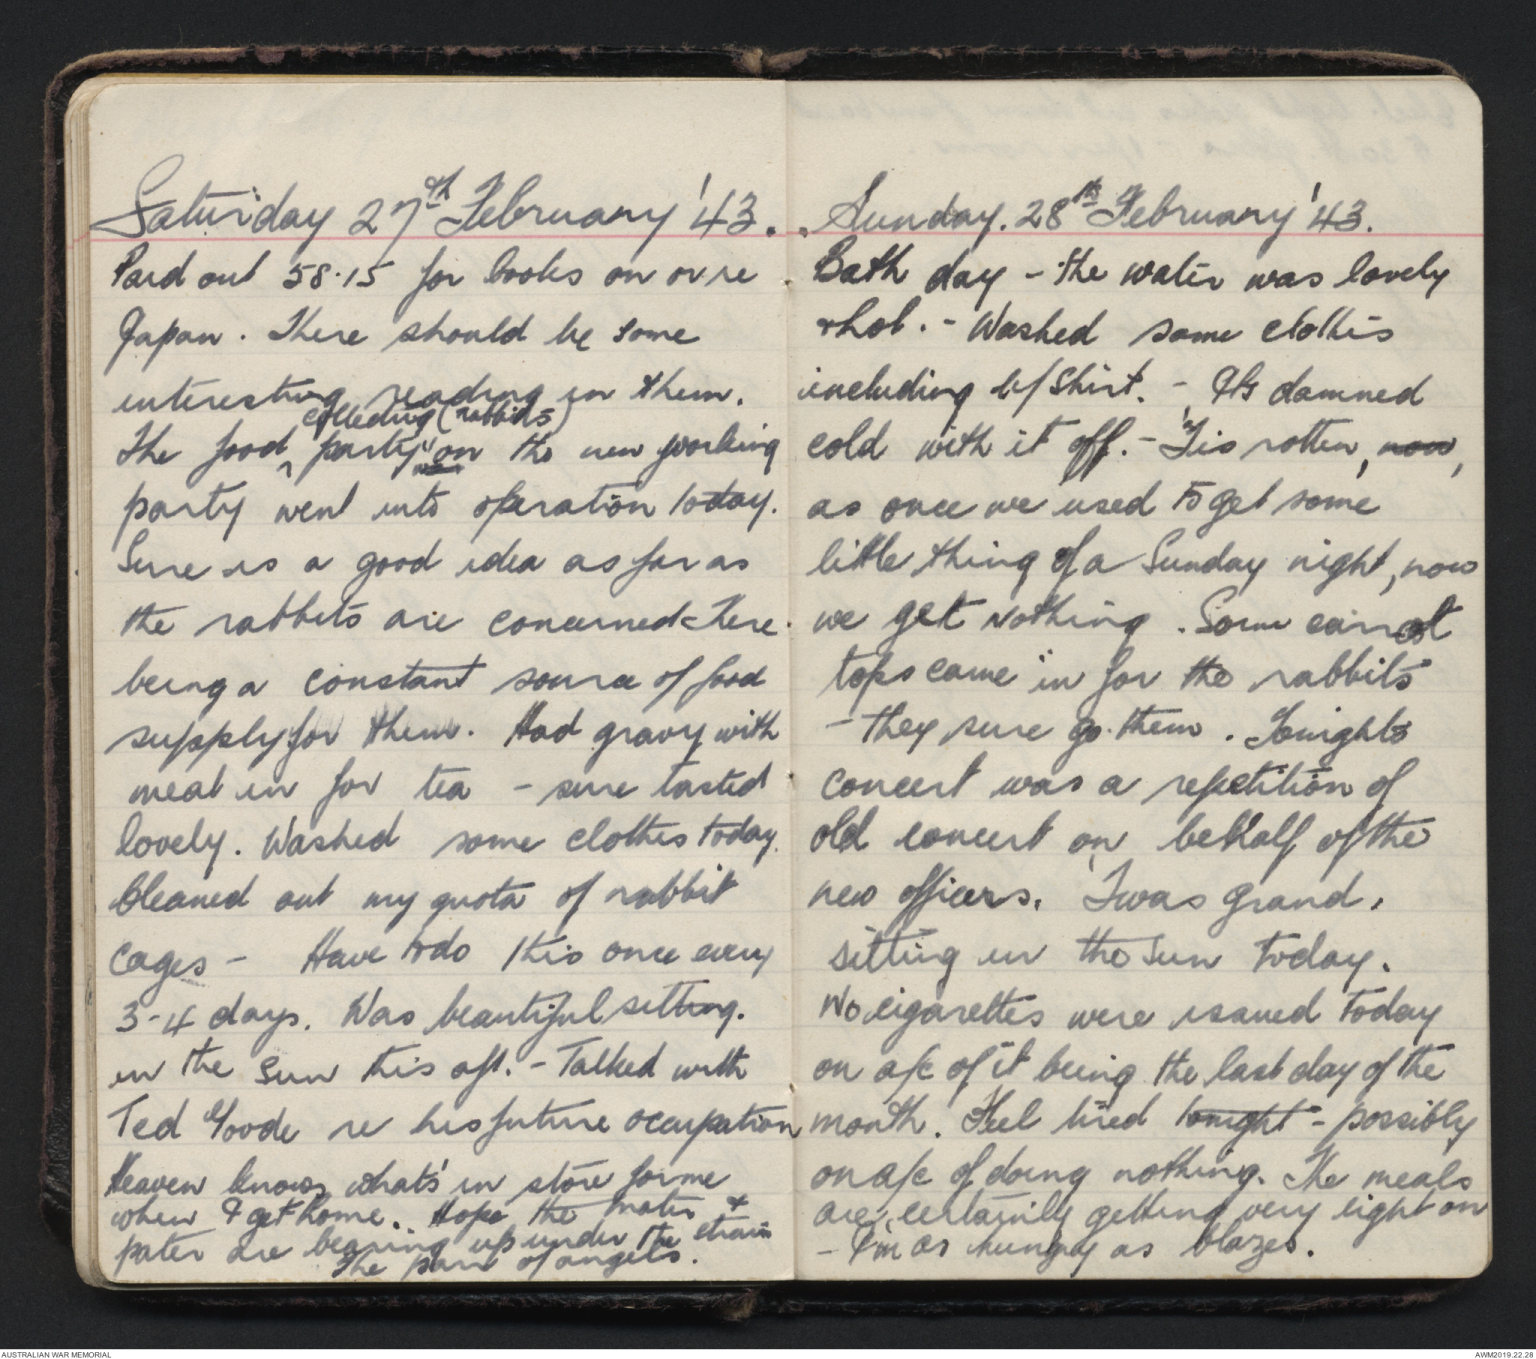 Saturday 27th February '43.
Paid out 58.15 for books on or re
Japan. There should be some
interesting reading in them.
collecting (rabbits)
The food party on the new working
party went into operation today.
Sure is a good idea as far as
the rabbits are concerned there
being a constant source of food
supply for them. Had gravy with
meat in for tea - sure tasted
lovely. Washed some clothes today.
Cleaned out my quota of rabbit
cages - Have to do this once every
3-4 days. Was beautiful sitting.
in the sun this aft. - Talked with
Ted Goode re his future occupation
Heaven knows what's in store for me
when I get home. Hope the mater &
pater are bearing up under the strain
The pair of angels.
Sunday. 28th February '43.
Bath day - the water was lovely
& hot. - Washed some clothes
including w/shirt. - It's damned
cold with it off. - 'Tis rotten, now,
as once we used to get some
little thing of a Sunday night, now
we get nothing. Some carrot
tops came in for the rabbits
- they sure go them. Tonights
concert was a repetition of
old concert on behalf of the
new officers. 'Twas grand,
sitting in the sun today.
No cigarettes were issued today
on a/c of it being the last day of the
month. Feel tired tonight - possibly
on a/c of doing nothing. The meals
are certainly getting very light on
- I'm as hungry as blazes.
AUSTRALIAN WAR MEMORIAL
AWM2019.22.28